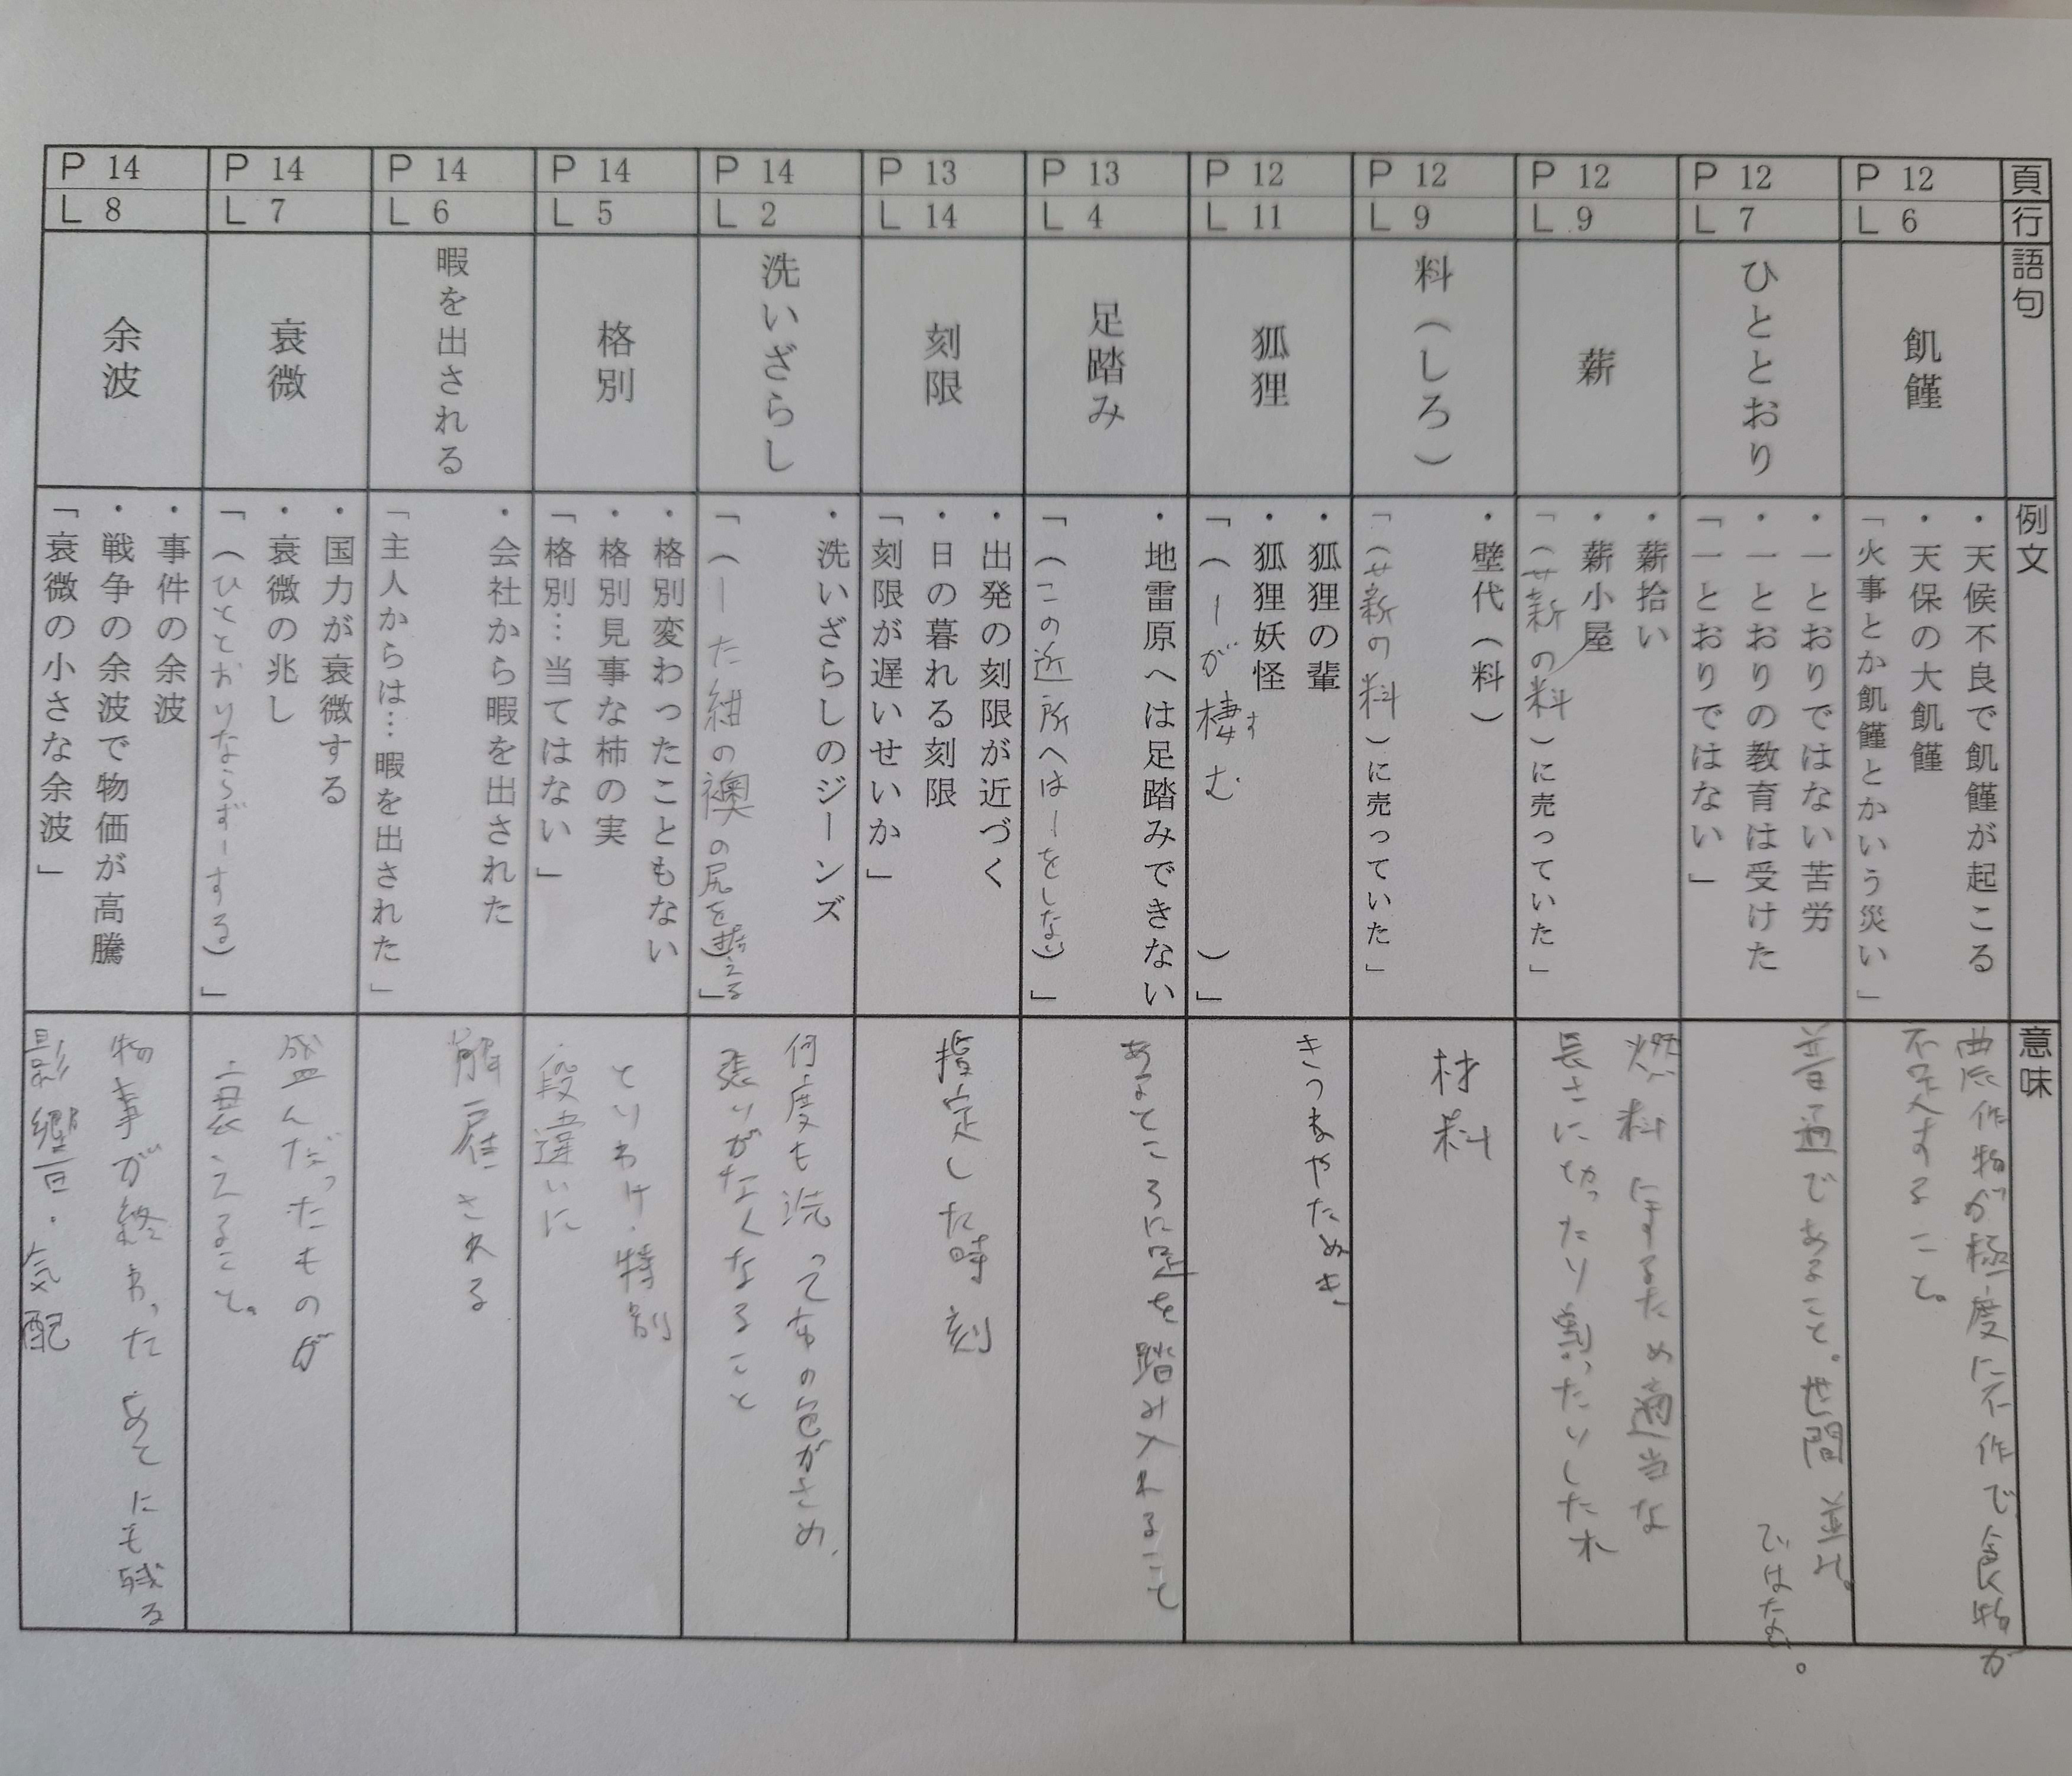 頁
行
語句
例文
意味
P 12
L 6
飢饉
・天候不良で飢饉が起こる
・天保の大飢饉
「火事とか飢饉とかいう災い」
農作物が極度に不作で、食物が
不足すること。
P 12
L 7
ひととおり
・一とおりではない苦労
・一とおりの教育は受けた
「一とおりではない」
普通であること。世間並み。
ではない。
P 12
L 9
薪
・薪拾い
・薪小屋
「(薪の料)に売っていた」
燃料にするため適当な
長さに切ったり割ったりした木
P 12
L 9
料(しろ)
・壁代(料)
「(薪の料)に売っていた」
材料
P 12
L 11
狐狸
・狐狸の輩
・狐狸妖怪
「(ーが棲む)」
す
きつねやたぬき
P 13
L 4
足踏み
・地雷原へは足踏みできない
「(この近所へはーをしない)」
あるところに足を踏み入れること
P 13
L 14
刻限
・出発の刻限が近づく
・日の暮れる刻限
「刻限が遅いせいか」
指定した時刻
P 14
L 2
洗いざらし
・洗いざらしのジーンズ
「(ーた紺の襖の尻を据える)」
何度も洗って布の色がさめ、
張りがなくなること
P 14
L 5
格別
・格別変わったこともない
・格別見事な柿の実
「格別…当てはない」
とりわけ・特別
段違いに
P 14
L 6
暇を出される
・会社から暇を出された
「主人からは…暇を出された」
解雇される
P 14
L 7
衰微
・国力が衰微する
・衰微の兆し
「(ひととおりならずーする)」
盛んだったものが
衰えること。
P 14
L 8
余波
・事件の余波
・戦争の余波で物価が高騰
「衰微の小さな余波」
物事が終わったあとにも残る
影響・気配